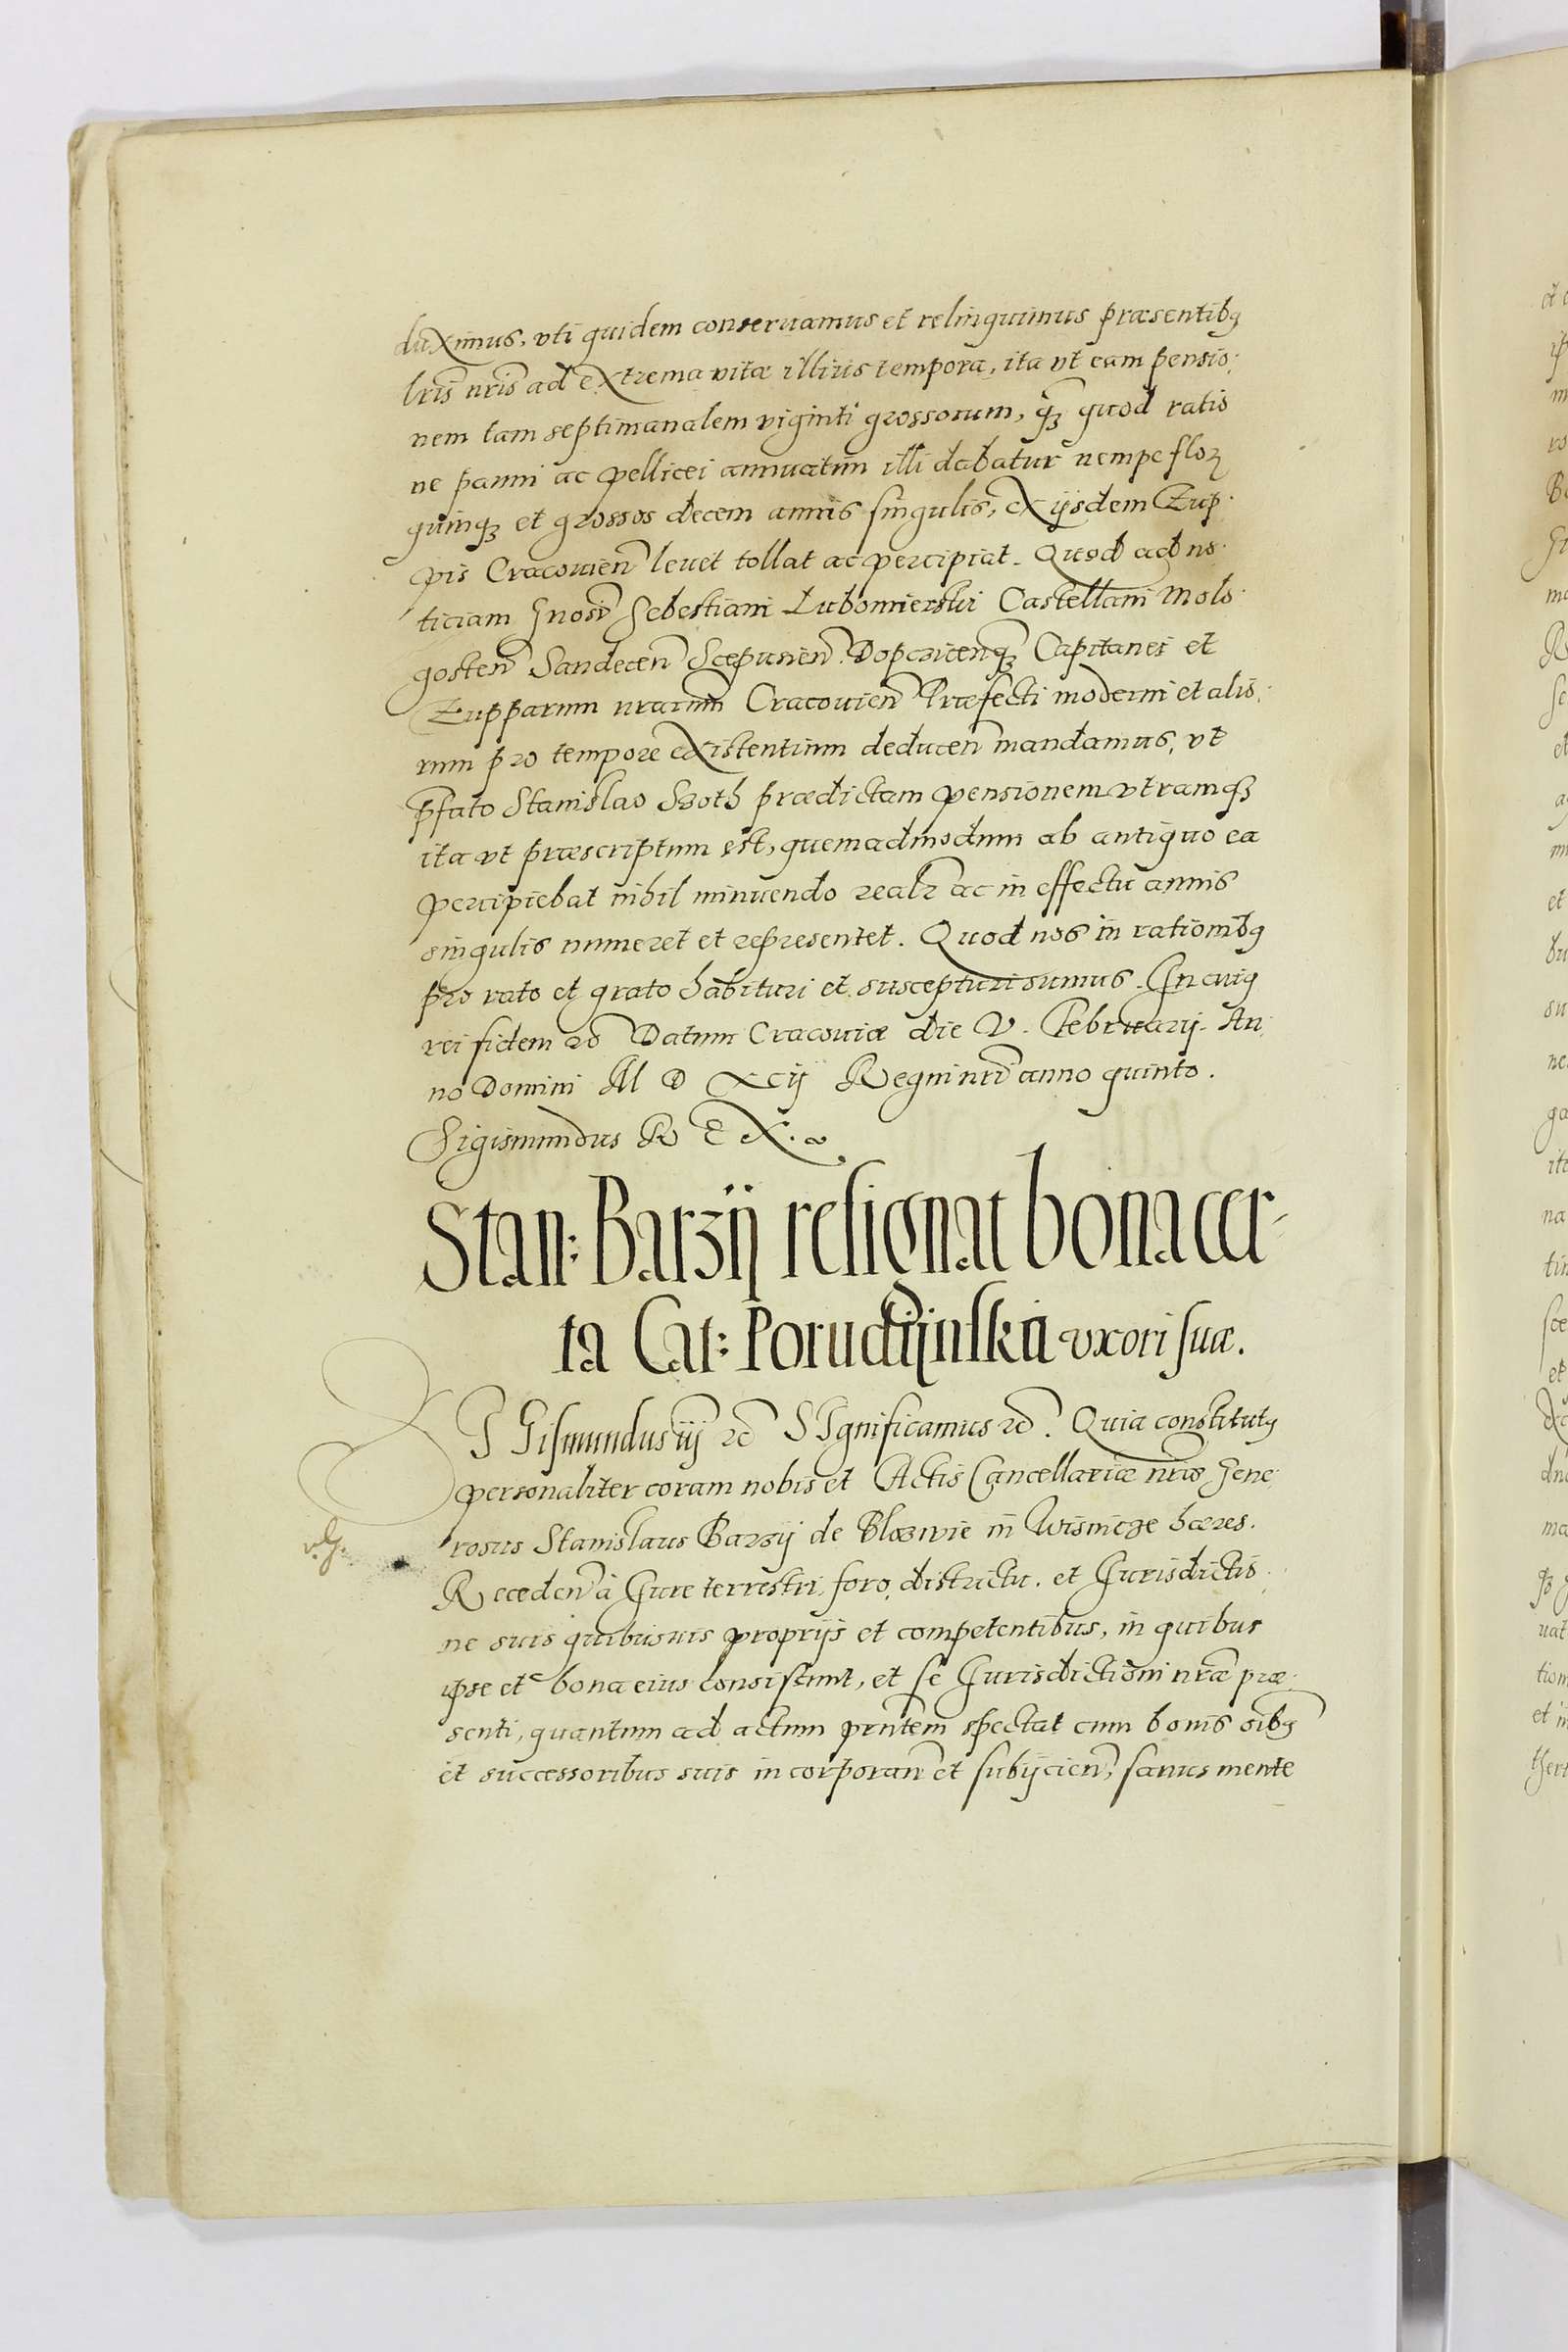 duximus, vti quidem conseruamus et relinquimus præsentibꝯ
lris nris ad extrema vitæ illius tempora, ita vt eam pensio:
nem tam septimanalem viginti grossorum, qꝫ quod ratio
ne panni ac pellicei annuatim illi dabatur nempe floꝝ
quinqꝫ et grossos decem annis singulis, ex ijsdem Zup:
pis Cracouien leuet tollat ac percipiat. Quod ad no:
ticiam Gnosi Sebestiani Lubomierski Castellani Malo:
gosten Sandecen Scepusien Dopczicenqꝫ Capitanei et
Zupparum nrarum Cracouien Præfecti moderni et alio:
rum pro tempore existentium deducen mandamus, vt
pfato Stanislao Szoth prædictam pensionem vtramqꝫ
ita vt præscriptum est, quemadmodum ab antiquo ea
percipiebat nihil minuendo realr ac in effectu annis
singulis numeret et representet. Quod nos in rationibꝯ
pro rato et grato habituri et suscepturi sumus. In cuiꝯ
rei fidem ꝛc Datum Cracouiæ die V. Februarij. An:
no Domini M D XCij Regni nri anno quinto.
Sigismundus R E X.
Stan: Barzij resignat bona cer-
ta Cat: Porudijnska vxori suæ.
SIGismundus iij ꝛc SIgnificamus ꝛc. Quia constitutꝯ
personaliter coram nobis et Actis Cancellariæ nræ Gene:
v. G.
rosus Stanislaus Barzij de Blozwie in Wisnicze hæres.
Receden à Iure terrestri, foro, districtu. et Iurisdictio:
ne suis quibusuis proprijs et competentibus, in quibus
ipse et bona eius consistunt, et se Iurisdictioni nræ præ:
senti, quantum ad actum pntem spectat cum bonis oibꝯ
et successoribus suis incorporan et subijcien, sanus mente